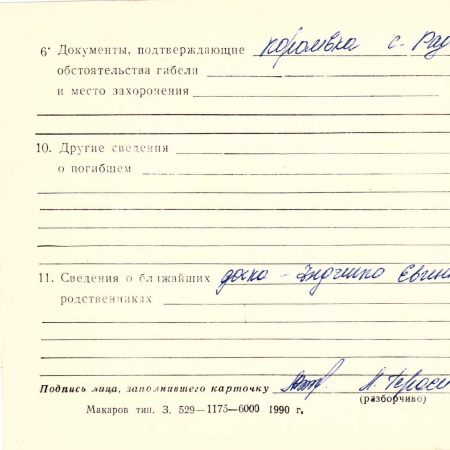 6· Документы, подтверждающие с. Рад
обстоятельства гибели
и место захоронения
10. Другие сведения
о погибшем
11. Сведения о ближайших
родственниках
Подпись лица, заполнившего карточку
(разборчиво)
Макаров тип. З. 529—1175—6000 1990 г.